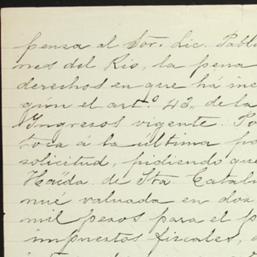 pensa al Sor. Lic. Pablo
nes del Rio, la pena
derechos en que há inc
gún el arto. 43, de la
Ingresos vigente. Po
toca á la última pa
solicitud, pidiendo que
Hacida. de Sta Catali
nue valuada en dos
mil pesos para el p
impuestos fiscales,